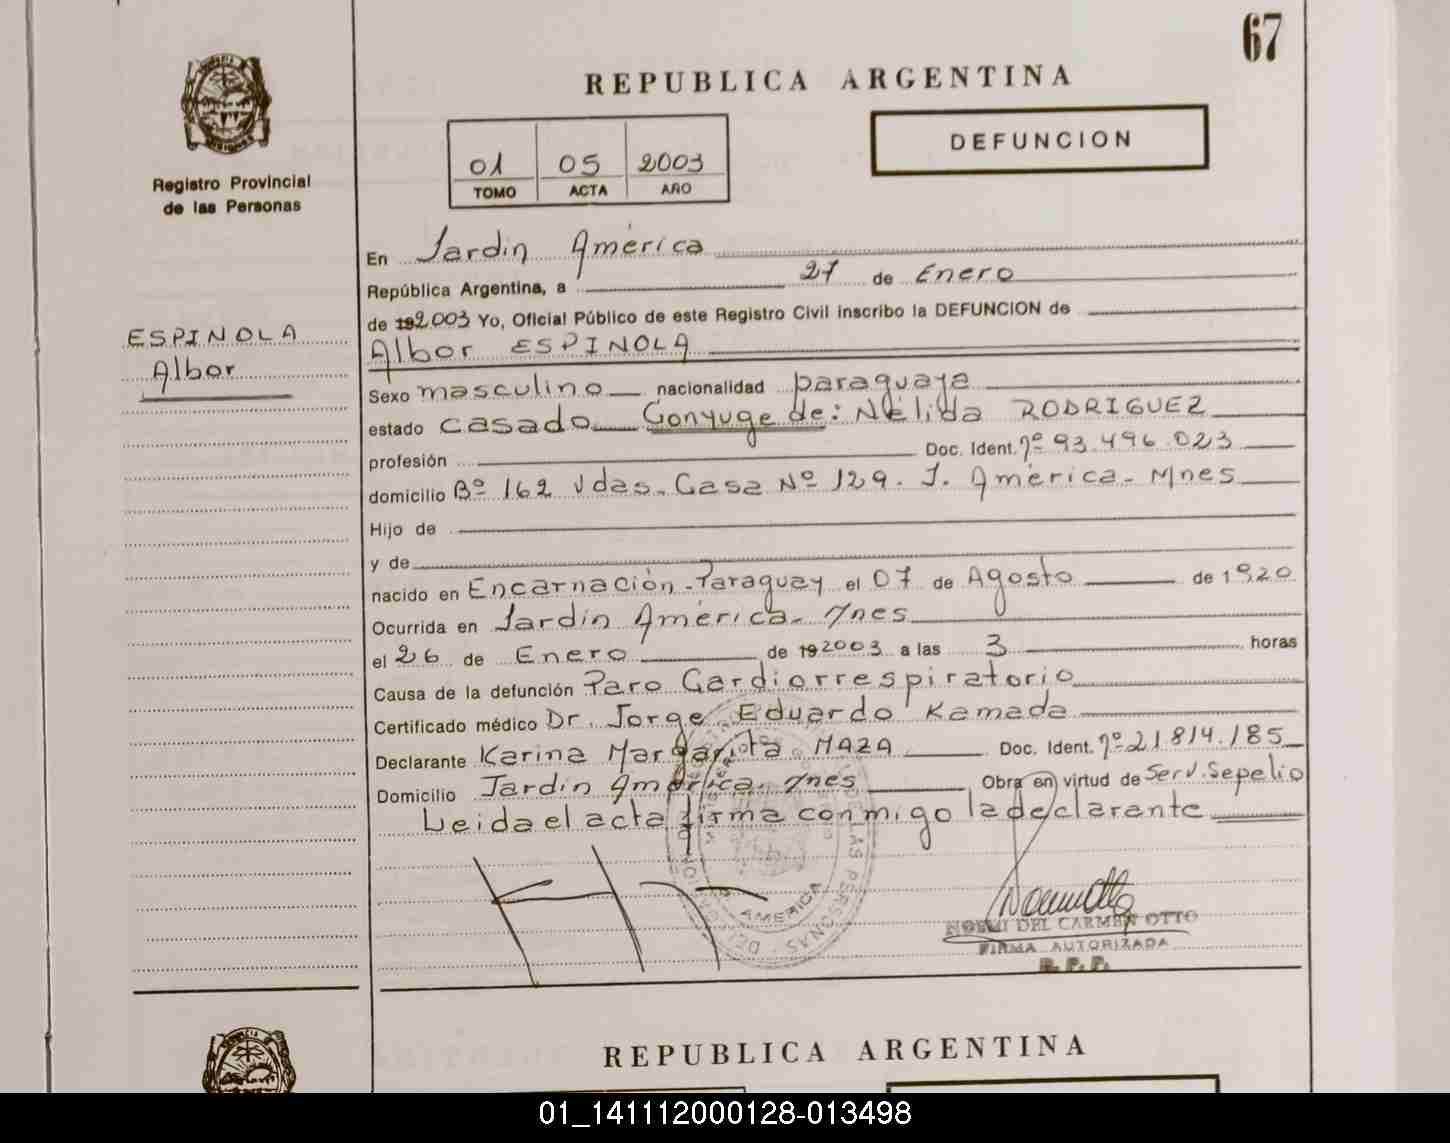 67
REPUBLICA ARGENTINA
DEFUNCION
01 05 2003
TOMO ACTA AÑO
Registro Provincial
de las Personas
ESPINOLA
Albor
En Jardin América
República Argentina, a 27 de Enero
de 192.003 Yo, Oficial Público de este Registro Civil inscribo la DEFUNCION de
Albor ESPINOLA
Sexo masculino nacionalidad paraguaya
estado casado Conyuge de: Nélida RODRIGUEZ
profesión Doc. Ident. nº 93.496.023
domicilio Bº 162 Vdas. Casa Nº 129. J. América. Mnes
Hijo de
y de
nacido en Encarnación-Paraguay el 07 de Agosto de 1920
Ocurrida en Jardín América. Mnes
el 26 de Enero de 192003 a las 3 horas
Causa de la defunción Paro Cardiorrespiratorio
Certificado médico Dr. Jorge Eduardo Kamada
Declarante Karina Margarita MAZA Doc. Ident. nº 21.814.185
Domicilio Jardín América. Mnes Obra en virtud de Serv. Sepelio
Leida el acta firma conmigo la declarante
AMERICA
DE LAS PERSONAS - DELEGACION
NOEMI DEL CARMEN OTTO
FIRMA AUTORIZADA
R. P. P.
REPUBLICA ARGENTINA
01_141112000128-013498